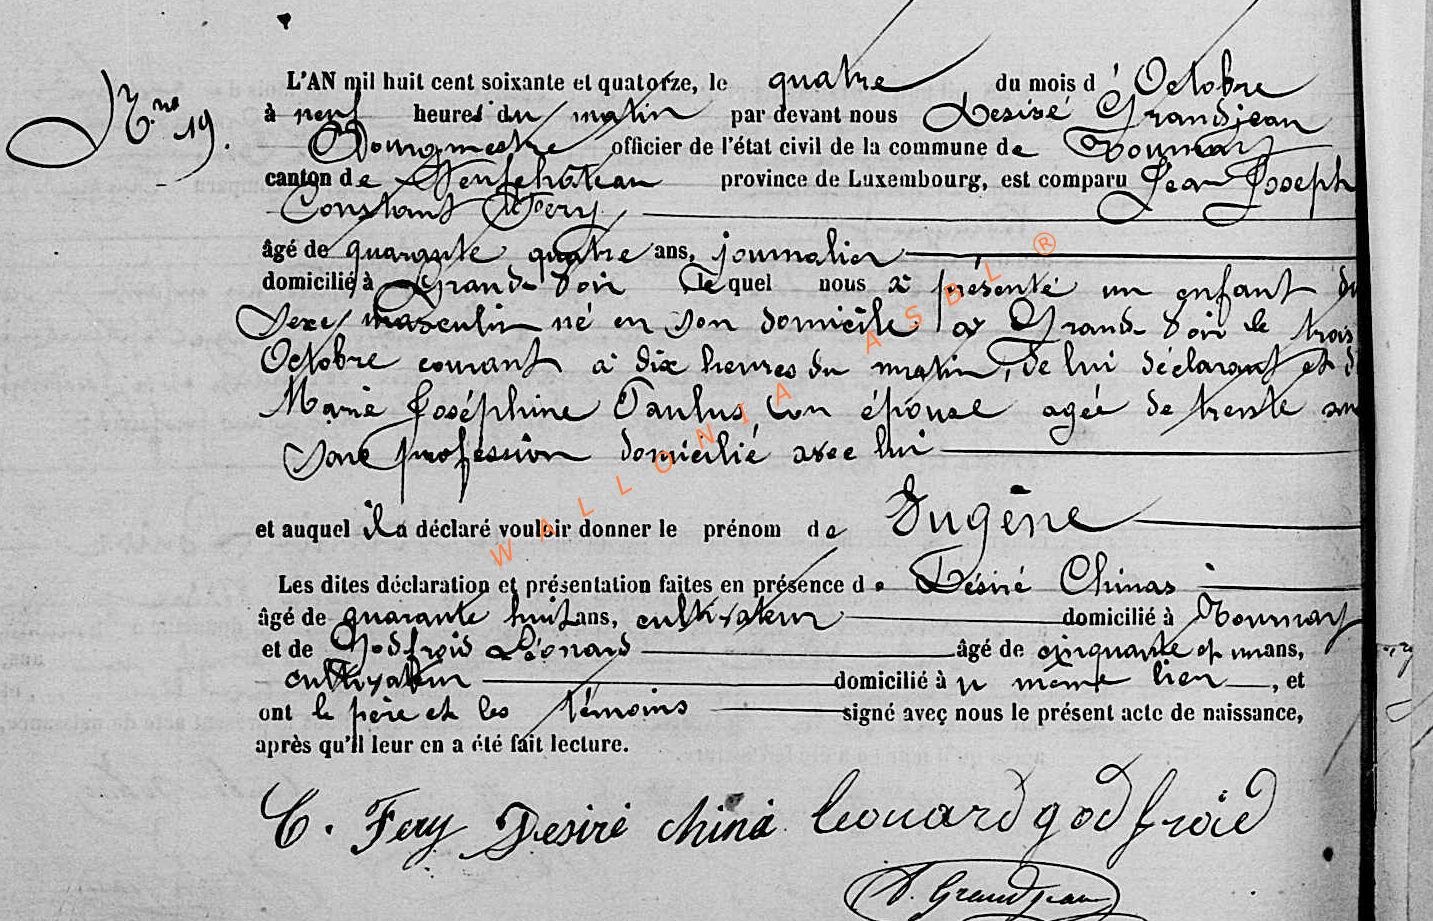 N.ro 19.
L'AN mil huit cent soixante et quatorze, le quatre du mois d'Octobre
à neuf heures du matin par devant nous Désiré Grandjean
Bourgmestre officier de l'état civil de la commune de Tournay
canton de Neufchâteau province de Luxembourg, est comparu Jean Joseph
Constant Fery
âgé de quarante quatre ans, journalier
domicilié à Grand-Voir lequel nous a présenté un enfant du
sexe masculin né en son domicile à Grand-Voir le trois
Octobre courant à dix heures du matin, de lui déclarant et d
Marie Joséphine Paulus, son épouse agée de trente ans
sans profession domicilié avec lui
et auquel il a déclaré vouloir donner le prénom de Eugène
Les dites déclaration et présentation faites en présence de Désiré Chinas
âgé de quarante huit ans, cultivateur domicilié à Tournay
et de Godfroid Léonard âgé de cinquante et un ans,
cultivateur domicilié à u même lieu, et
ont le père et les témoins signé aveç nous le présent acte de naissance,
après qu'il leur en a été fait lecture.
C. Fery Desiré china leonard godfroid
D. Grandjean
WALLONIA ASBL ®